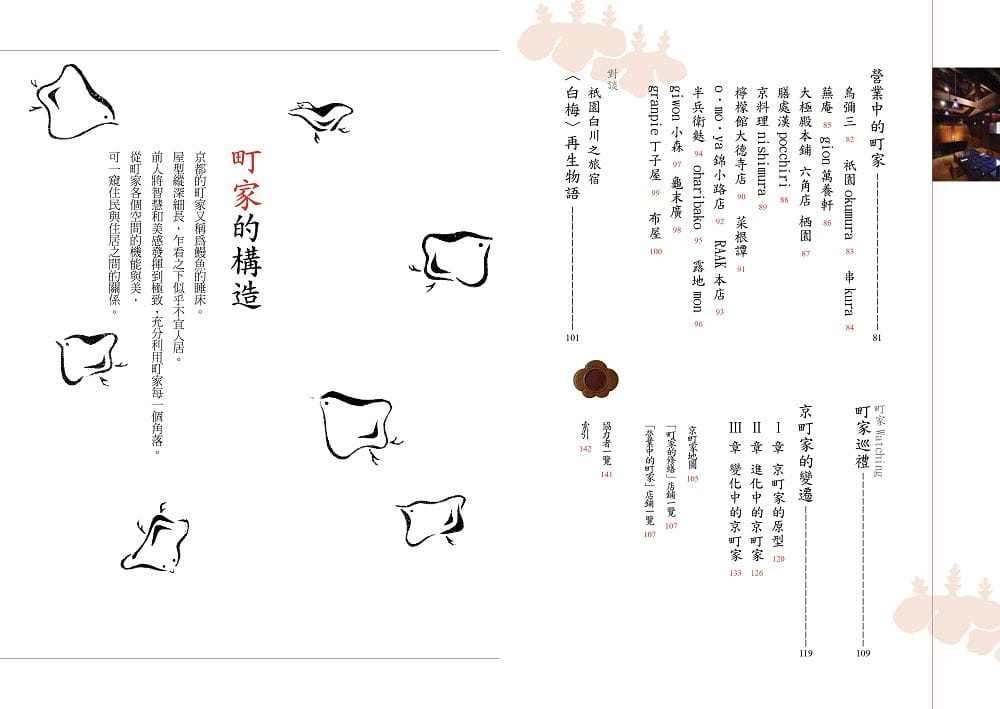 營業中的町家 81
鳥彌三 82 祇園 okumura 83 串 kura 84
蕪庵 85 gion 萬養軒 86
大極殿本鋪 六角店 栖園 87
膳處漢 pocchiri 88
京料理 nishimura 89
檸檬館大德寺店 90 菜根譚 91
o・mo・ya 錦小路店 92 RAAK 本店 93
半兵衛麩 94 oharibako 95 露地 mon 96
giwon 小森 97 龜末廣 98
granpie 丁子屋 99 布屋 100
對談
祇園白川之旅宿
〈白梅〉再生物語 101
町家 Watching
町家巡禮 109
京町家的變遷 119
I 章 京町家的原型 120
II 章 進化中的京町家 126
III 章 變化中的京町家 133
京町家地圖 105
「町家的修繕」店鋪一覽 107
「營業中的町家」店鋪一覽 107
協力者一覽 141
索引 142
町家的構造
京都的町家又稱為鰻魚的睡床。
屋型縱深細長，乍看之下似乎不宜人居。
前人將智慧和美感發揮到極致，充分利用町家每一個角落。
從町家各個空間的機能與美，
可一窺住民與住居之間的關係。